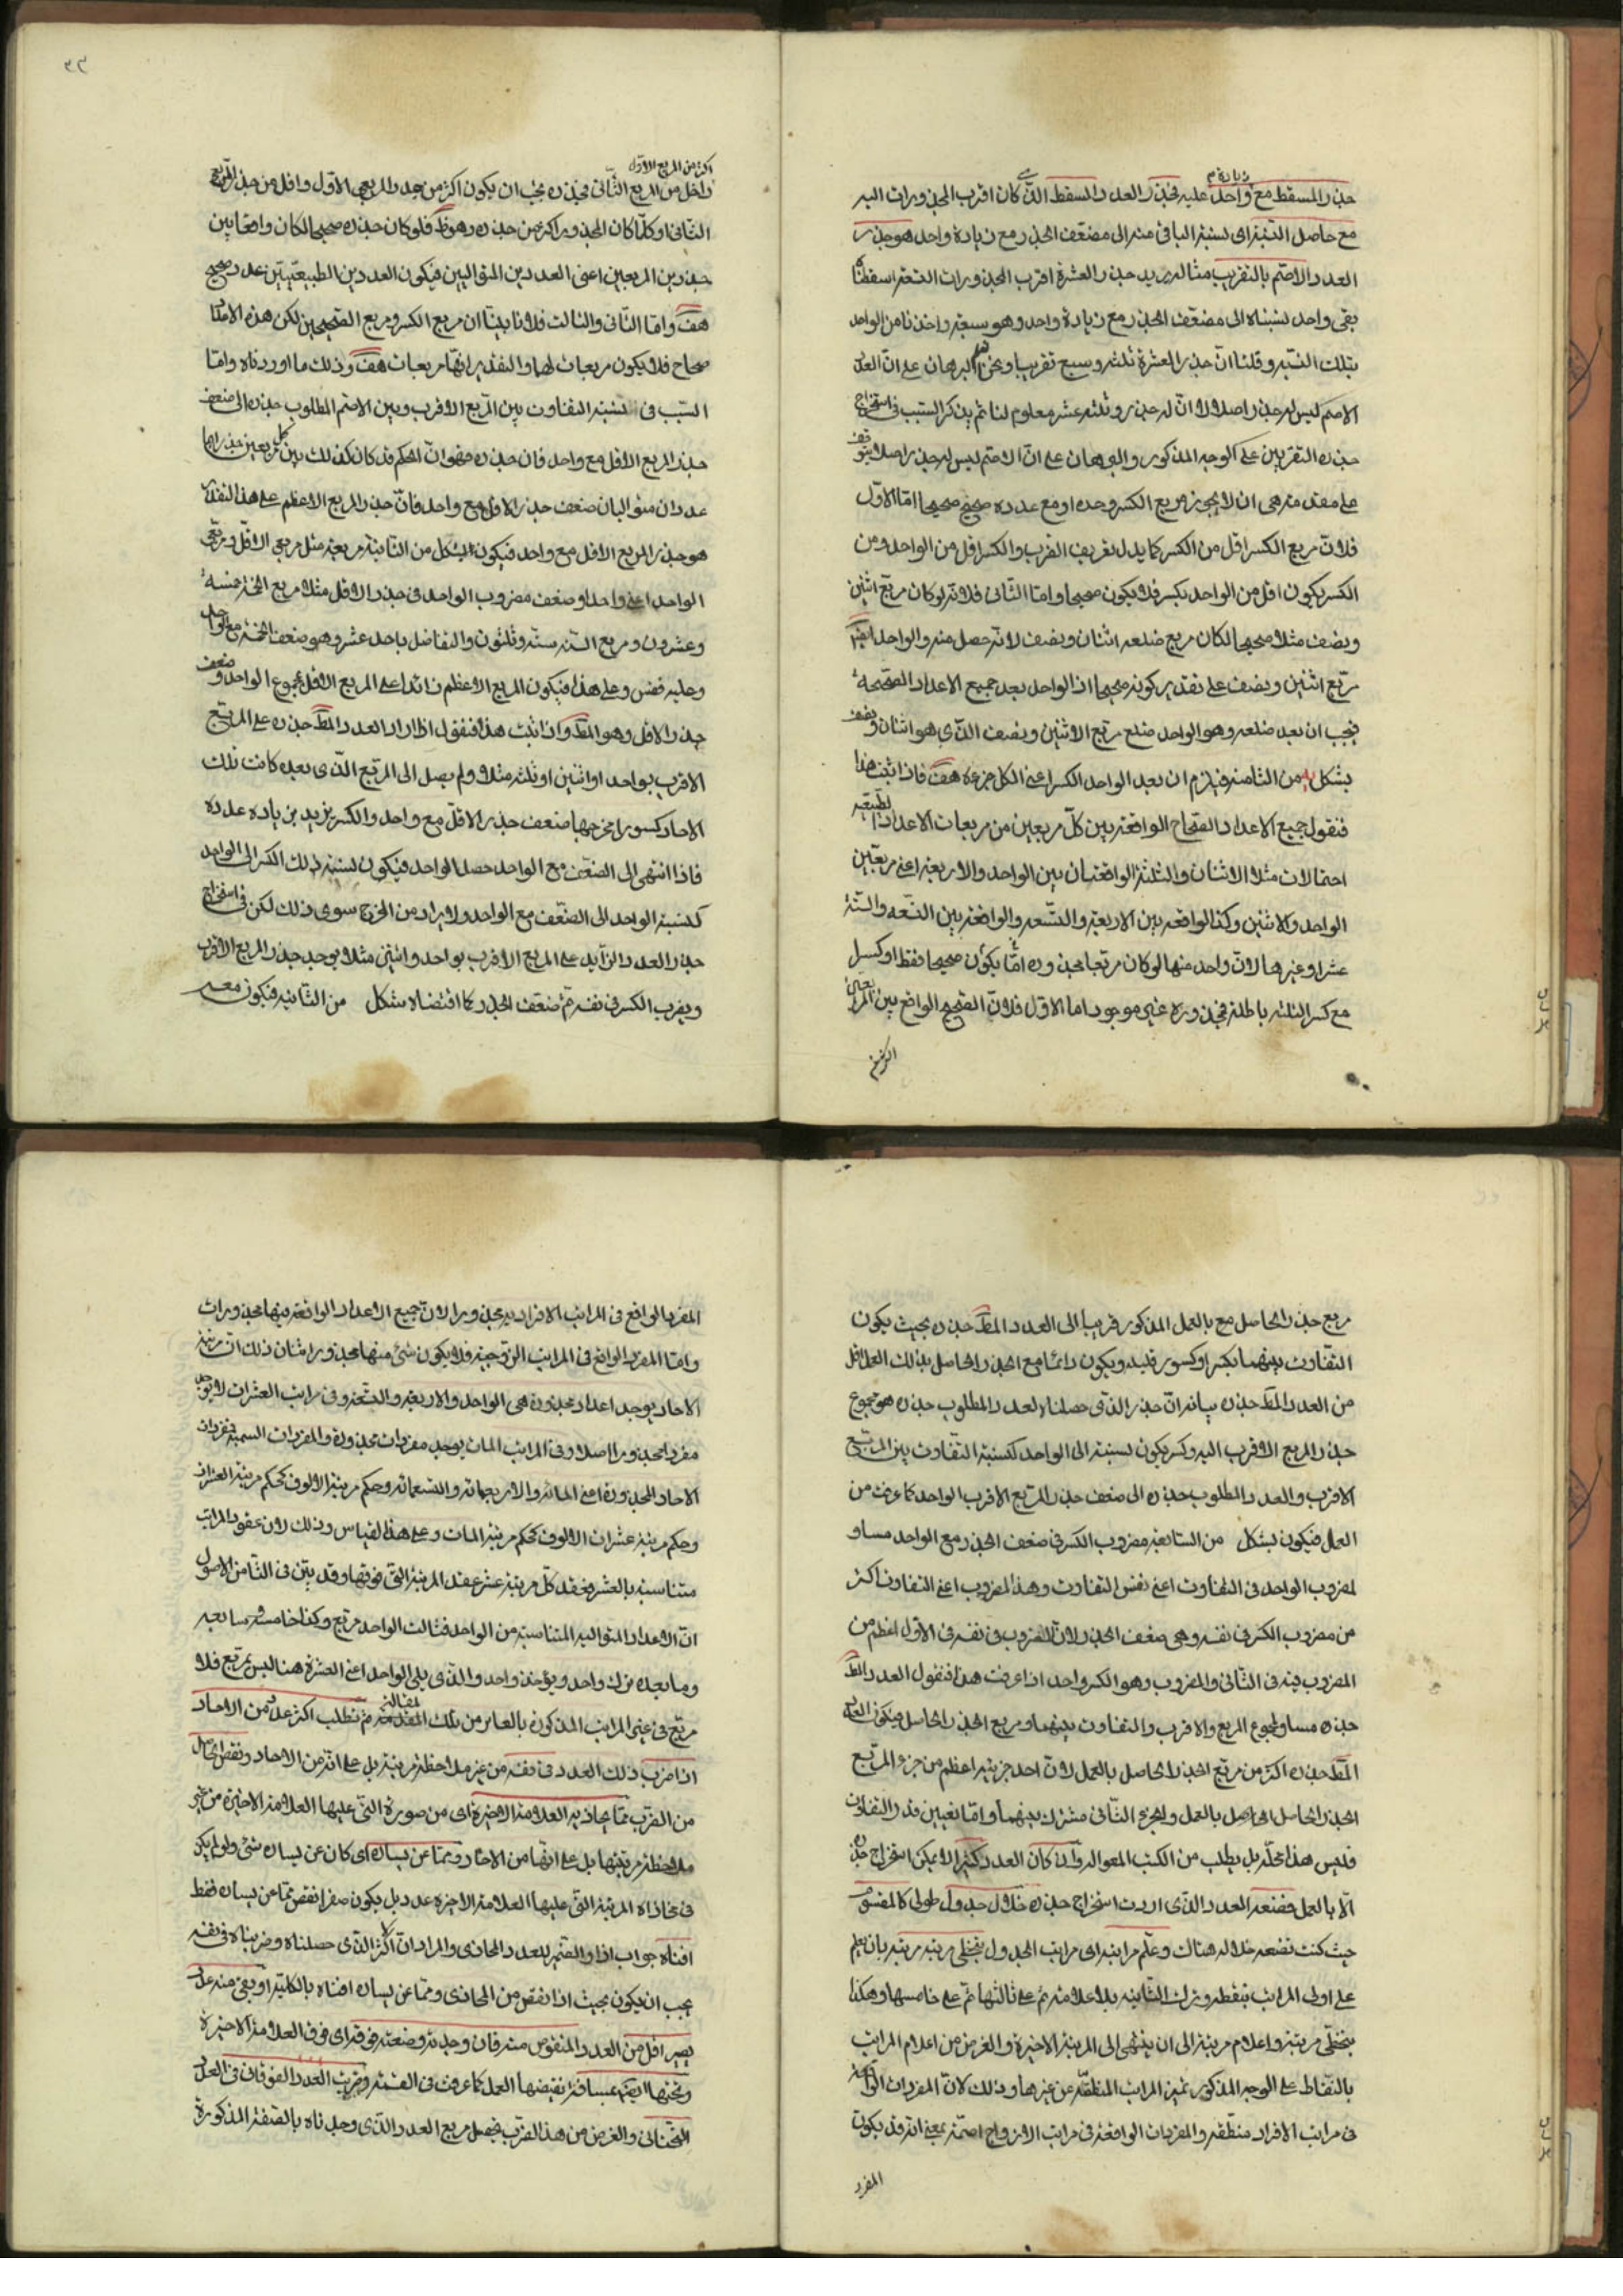 جذر المسقط مع زيادة واحد عليه فجذر العدد المسقط الذى كان اقرب المجذورات اليه
مع حاصل النسبة اى نسبة الباقى منه الى مضعف الجذر مع زيادة واحد هو جذر
العدد الاصم بالتقريب مثاله نريد جذر العشرة اقرب المجذورات التسعة اسقطناه
بقى واحد نسبناه الى مضعف الجذر مع زيادة واحد وهو سبعة واخذنا من الواحد
بتلك النسبة وقلنا ان جذر العشرة ثلثة وسبع تقريبا ونحن البرهان على ان العدد
الاصم ليس له جذر اصلا لا ان له جذر وثلثه عشر معلوم لنا ثم نذكر السبب فى استخراج
جذره التقريبى على الوجه المذكور والبرهان على ان الاصم ليس له جذر اصلا يتوقف
على مقدمة هى ان لا يجوز مربع الكسر وحده او مع عدد صحيح صحيحا اما الاول
فلان مربع الكسر اقل من الكسر كما يدل تعريف الضرب والكسر اقل من الواحد ومن
الكسر يكون اقل من الواحد بكسر فلا يكون صحيحا واما الثانى فلانه لو كان مربع اثنين
ونصف مثلا صحيحا لكان مربع ضلعه اثنان ونصف لانه حصل منه والواحد ايضا
مربع اثنين ونصف على تقدير كونه صحيحا اذ الواحد يعد جميع الاعداد الصحيحة
فيجب ان يعد ضلعه وهو الواحد ضلع مربع الاثنين ونصف الذى هو اثنان ونصف
بشكل من الثامنة فيلزم ان يعد الواحد الكسر اعنى الكل جزءه هف فاذا اثبت هذا
فنقول جميع الاعداد الصحاح الواقعة بين كل مربعين من مربعات الاعداد الطبيعية
احتمالات مثلا الاثنان والثلثة الواقعتان بين الواحد والاربعة اعنى مربعين
الواحد والاثنين وكذا الواقعة بين الاربعة والتسعة والواقعة بين التسعة والستة
عشر وغيرها لان واحد منها لو كان مربعا مجذوره اما يكون صحيحا فقط او كسرا
مع كسر الثلثه باطلة مجذوره غير موجود اما الاول فلان الصحيح الواقع بين المربعين
اكثر من المربع الاول
واقل من المربع الثانى فجذره يجب ان يكون اكثر من جذر المربع الاول واقل من جذر المربع
الثانى او كلما كان المجذور اكثر من جذره وهو ظ فلو كان جذره صحيحا لكان واقعا بين
جذرين المربعين اعنى العددين المتواليين فيكون العددين الطبيعيتين عدد صحيح
هف واما الثانى والثالث فلانا بينا ان مربع الكسر ومربع الصحيحين لكن هذه الاعداد
صحاح فلا يكون مربعات لهما والتقدير انها مربعات هف وذلك ما اوردناه واما
السبب فى نسبة التفاوت بين المربع الاقرب وبين الاصم المطلوب جذره الى ضعف
جذر المربع الاقل مع واحد فان جذره فهو ان الحكم قد كان كذلك بين كل مربعين جذراهما
عددان متواليان ضعف جذر الاول مع واحد فان جذر المربع الاعظم على هذا التقدير
هو جذر المربع الاقل مع واحد فيكون بشكل من الثانية مربعه مثل مربعى الاقل ومربعى
الواحد اعنى واحدا وضعف مضروب الواحد فى جذر الاقل مثلا مربع الخمسة خمسة
وعشرون ومربع الستة ستة وثلثون والتفاضل باحد عشر وهو ضعف الخمسة مع الواحد
وعليه فقس وعلى هذا فيكون المربع الاعظم زائدا على المربع الاقل بمجموع الواحد وضعف
جذر الاقل وهو المط واذا ثبت هذا فنقول اذا زاد العدد المط جذره على المربع
الاقرب بواحد او اثنين او ثلثة مثلا ولم يصل الى المربع الذى بعده كانت تلك
الاحاد كسورا مخرجها ضعف جذر الاقل مع واحد والكسر يزيد بزيادة عدده
فاذا انتهى الى الضعف مع الواحد حصل الواحد فيكون نسبة ذلك الكسر الى الواحد
كنسبة الواحد الى الضعف مع الواحد ولا يراد من المخرج سوى ذلك لكن فى استخراج
جذر العدد الزايد على المربع الاقرب بواحد واثنين مثلا يوجد جذر المربع الاقرب
ويضرب الكسر فى نفسه ثم ضعف الجذر كما اقتضاه بشكل من الثانية فيكون معه
مربع جذر الحاصل مع بالعمل المذكور قريبا الى العدد المط جذره بحيث يكون
التفاوت بينهما بكسر او كسور قليلة ويكون دائما مع الجذر الحاصل بذلك العمل اقل
من العدد المط جذره بيانه ان جذر الذى حصلناه لعدد المطلوب جذره هو مجموع
جذر المربع الاقرب اليه وكسر يكون نسبته الى الواحد كنسبة التفاوت بين المربع
الاقرب والعدد المطلوب جذره الى ضعف جذر المربع الاقرب الواحد كما عرفت من
العمل فيكون بشكل من السابعة مضروب الكسر فى ضعف الجذر مع الواحد مساو
لمضروب الواحد فى التفاوت اعنى نفس التفاوت وهذا المضروب اعنى التفاوت اكثر
من مضروب الكسر فى نفسه وهى ضعف الجذر لان المضروب فى نفسه فى الاول اعظم من
المضروب فيه فى الثانى والمضروب وهو الكسر واحد اذا عرفت هذا فنقول العدد المط
جذره مساو لمجموع المربع والاقرب والتفاوت بينهما ومربع الجذر الحاصل فيكون العدد
المط جذره اكثر من مربع الجذر الحاصل بالعمل لان احد جزئيه اعظم من جزء المربع
الجذر الحاصل الحاصل بالعمل والجزء الثانى مشترك بينهما واما تعيين قدر التفاوت
فليس هذا محله بل يطلب من الكتب المطولة وان كان العدد كثيرا لا يمكن استخراج جذره
الا بالعمل فضع العدد الذى اردت استخراج جذره خلال جدول طولى كالمقسوم
حيث كنت تضعه خلاله هناك وعلم مراتبه اى مراتب الجدول بتخطى مرتبة مرتبة بان يعلم
على اولى المراتب بنقطة ويترك الثانية بلا علامة ثم على ثالثها ثم على خامسها وهكذا
بتخطى مرتبة واعلام مرتبة الى ان ينتهى الى المرتبة الاخيرة والغرض من اعلام المراتب
بالنقاط على الوجه المذكور تميز المراتب المنطقة عن غيرها وذلك لان المفردات الواقعة
فى مراتب الافراد منطقة والمفردات الواقعة فى مراتب الازواج اصمة بمعنى انه قد يكون
المفرد
المفرد الواقع فى المراتب الافراديه مجذورا لان جميع الاعداد الواقعة فيها مجذورات
واما المفرد الواقع فى المراتب الزوجية فلا يكون شئ منها مجذورا بيان ذلك ان مرتبة
الاحاد يوجد اعداد مجذورة هى الواحد والاربعة والتسعة وفى مراتب العشرات لا يوجد
مفرد مجذورا اصلا وفى المراتب المات يوجد مفردات مجذورة والمفردات السمية مفردات
الاحاد المجذورة اعنى المائة والاربعمائة والتسعمائة وحكم مرتبة الالوف كحكم مرتبة العشرات
وحكم مرتبة عشرات الالوف كحكم مرتبة المات وعلى هذا القياس وذلك لان عقود المراتب
متناسبة بالعشر فعقد كل مرتبة عشر عقد المرتبة التى فوقها وقد بين فى الثامن الاصول
ان الاعداد المتوالية المتناسبة من الواحد فثالث الواحد مربع وكذا خامسه وسابعه
وما بعده يترك واحد ويؤخذ واحد والذى يلى الواحد اعنى العشرة هنا ليس بمربع فلا
مربع فى غير المراتب المذكورة بالعاشر من تلك المقالة ثم نطلب اكثر عدد من الاحاد
اذا ضرب ذلك العدد فى نفسه من غير ملاحظة مرتبة بل على انه من الاحاد ونقص الحاصل
من الضرب مما يحاذيه العلامة الاخيرة اى من صورة التى عليها العلامة الاخيرة من غير
ملاحظة مرتبتها بل على انها من الاحاد ومما عن يساره اى كان عن يساره شئ ولو لم يكن
فى محاذاة المرتبة التى عليها العلامة الاخيرة عدد بل يكون صفرا نقص مما عن يساره فقط
افناه جواب اذا والضمير للعدد المحاذى والمراد ان اكثر الذى حصلناه وضربناه فى نفسه
يجب ان يكون بحيث اذا نقص من المحاذى ومما عن يساره افناه بالكلية او بقى منه عدد
يصير اقل من العدد المنقوص منه فان وجدته وضعته فوقه اى فوق العلامة الاخيرة
وتحتها ايضا بمسافة تقتضها العمل كما عرفت فى القسمة وضربت العدد الفوقانى فى العدد
التحتانى والغرض من هذا الضرب تحصيل مربع العدد الذى وجدناه بالصفة المذكورة